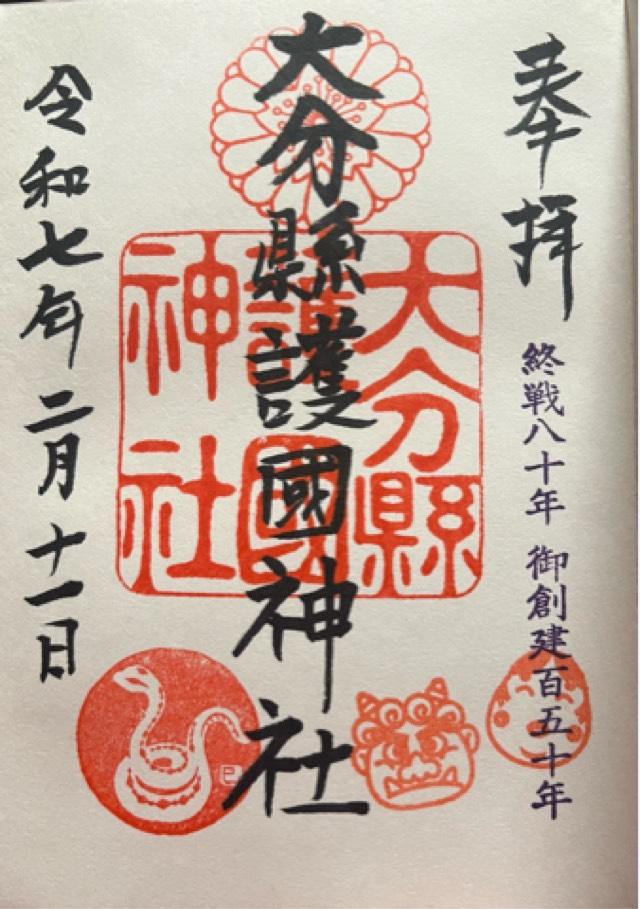 奉拝
終戦八十年 御創建百五十年
大分縣護國神社
大分縣護國神社
令和七年二月十一日
巳